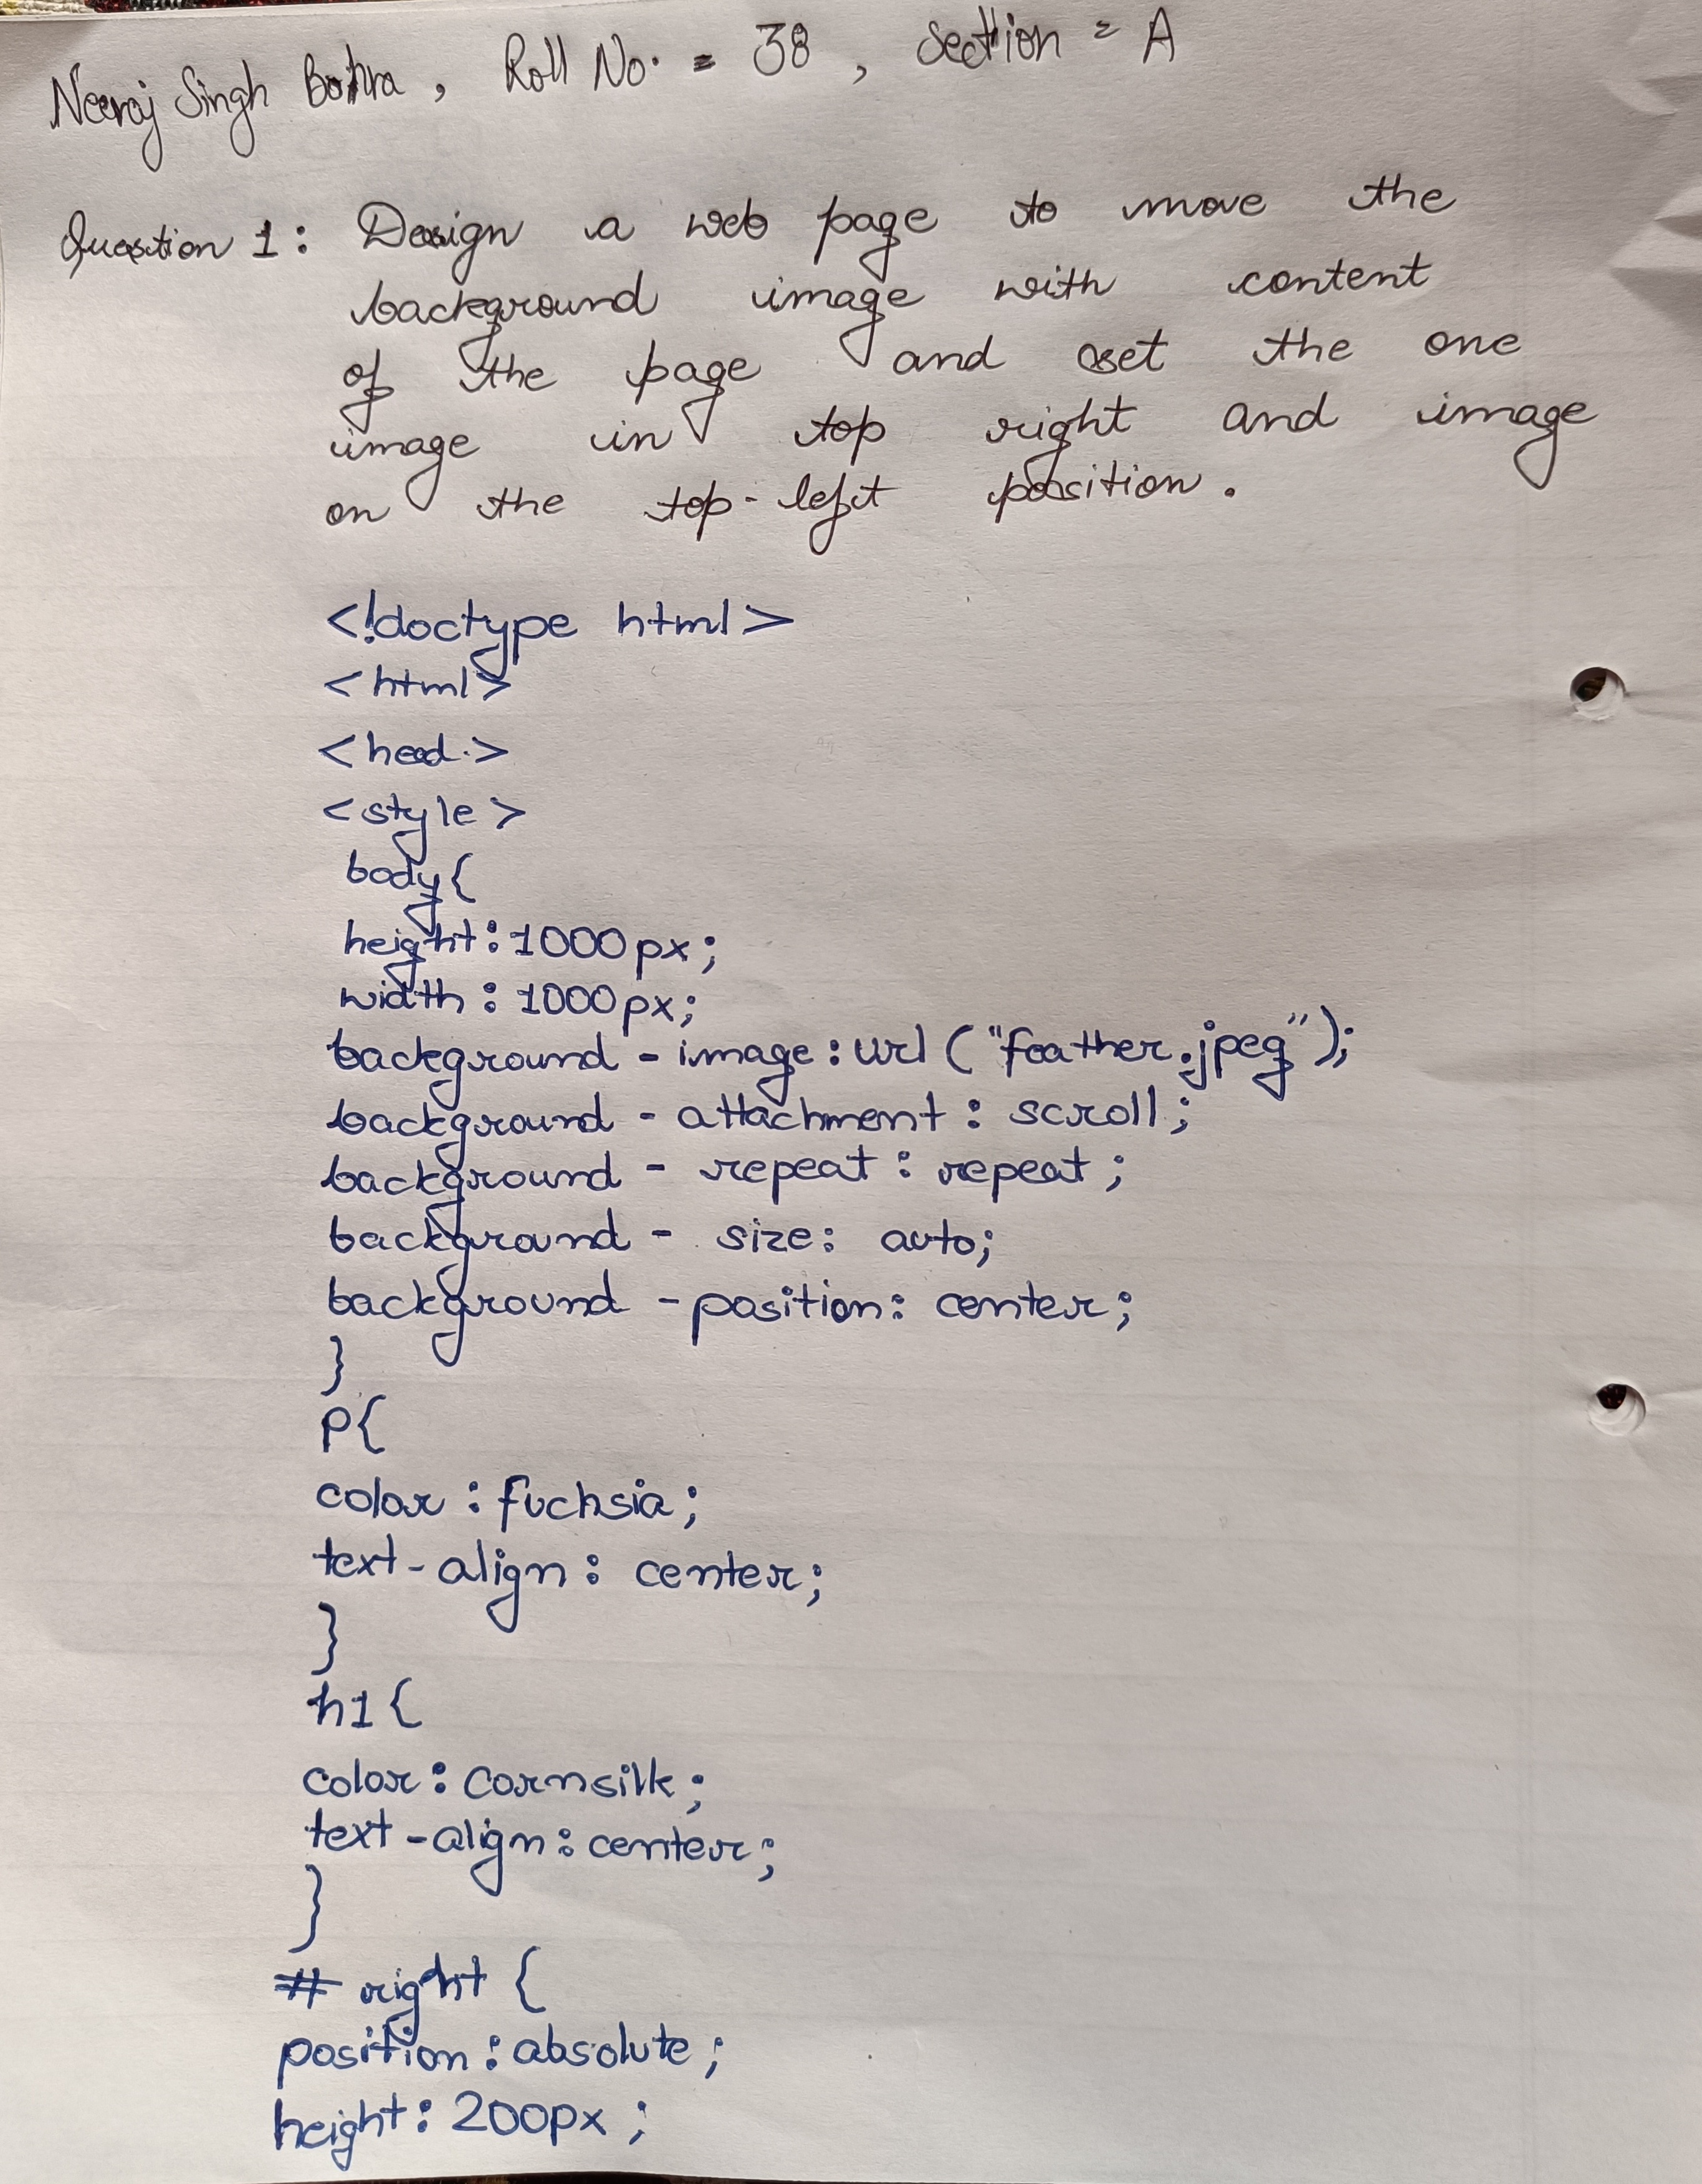 Neeraj Singh Bohra, Roll No. = 38, Section = A
Question 1: Design a web page to move the
background image with content
of the page and set the one
image in top right and image
on the top-left position.
<!doctype html>
<html>
<head>
<style>
body{
height:1000px;
width:1000px;
background-image:url("feather.jpeg");
background-attachment: scroll;
background-repeat: repeat;
background-size: auto;
background-position: center;
}
p{
color: fuchsia;
text-align: center;
}
h1{
color: cornsilk;
text-align: center;
}
#right {
position: absolute;
height: 200px;